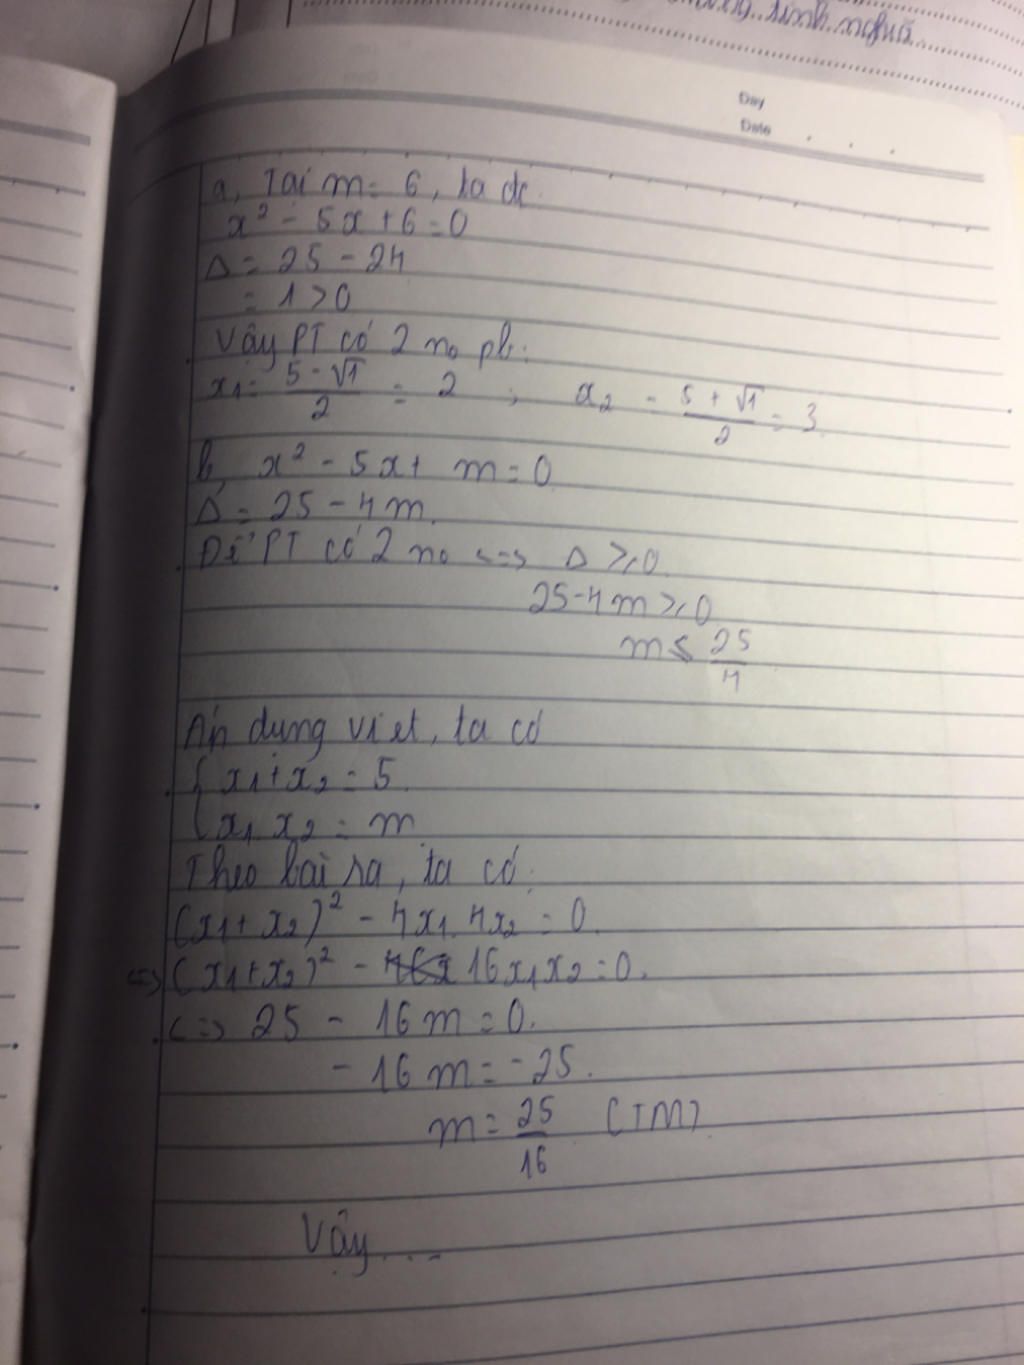 tình nghĩa
Day
Date
a, Tại m = 6, ta đc
x² - 5x + 6 = 0
Δ = 25 - 24
= 1 > 0
Vậy PT có 2 no pb:
x₁ = (5 - √1)/2 = 2 ; x₂ = (5 + √1)/2 = 3
b, x² - 5x + m = 0
Δ = 25 - 4m.
Để PT có 2 no <=> Δ ≥ 0
25 - 4m ≥ 0
m ≤ 25/4
Áp dụng viet, ta có
{ x₁ + x₂ = 5.
{ x₁ x₂ = m
Theo bài ra, ta có:
(x₁ + x₂)² - 4x₁.4x₂ = 0.
<=> (x₁ + x₂)² - 16x₁x₂ = 0.
<=> 25 - 16m = 0.
- 16m = -25.
m = 25/16 (TM)
Vậy ...